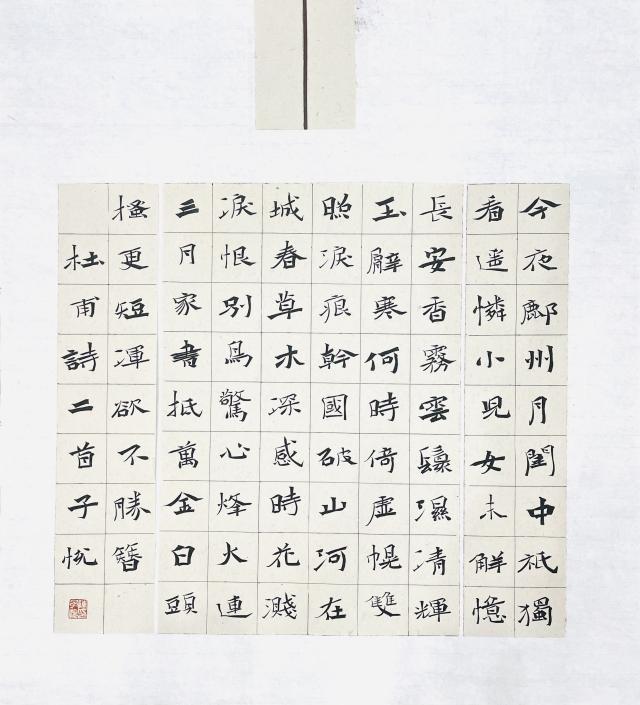 今夜鄜州月閨中祇獨
看遥憐小兒女未解憶
長安香霧雲鬟濕清輝
玉臂寒何時倚虛幌雙
照淚痕幹國破山河在
城春草木深感時花濺
淚恨別鳥驚心烽火連
三月家書抵萬金白頭
搔更短渾欲不勝簪
杜甫詩二首子悦